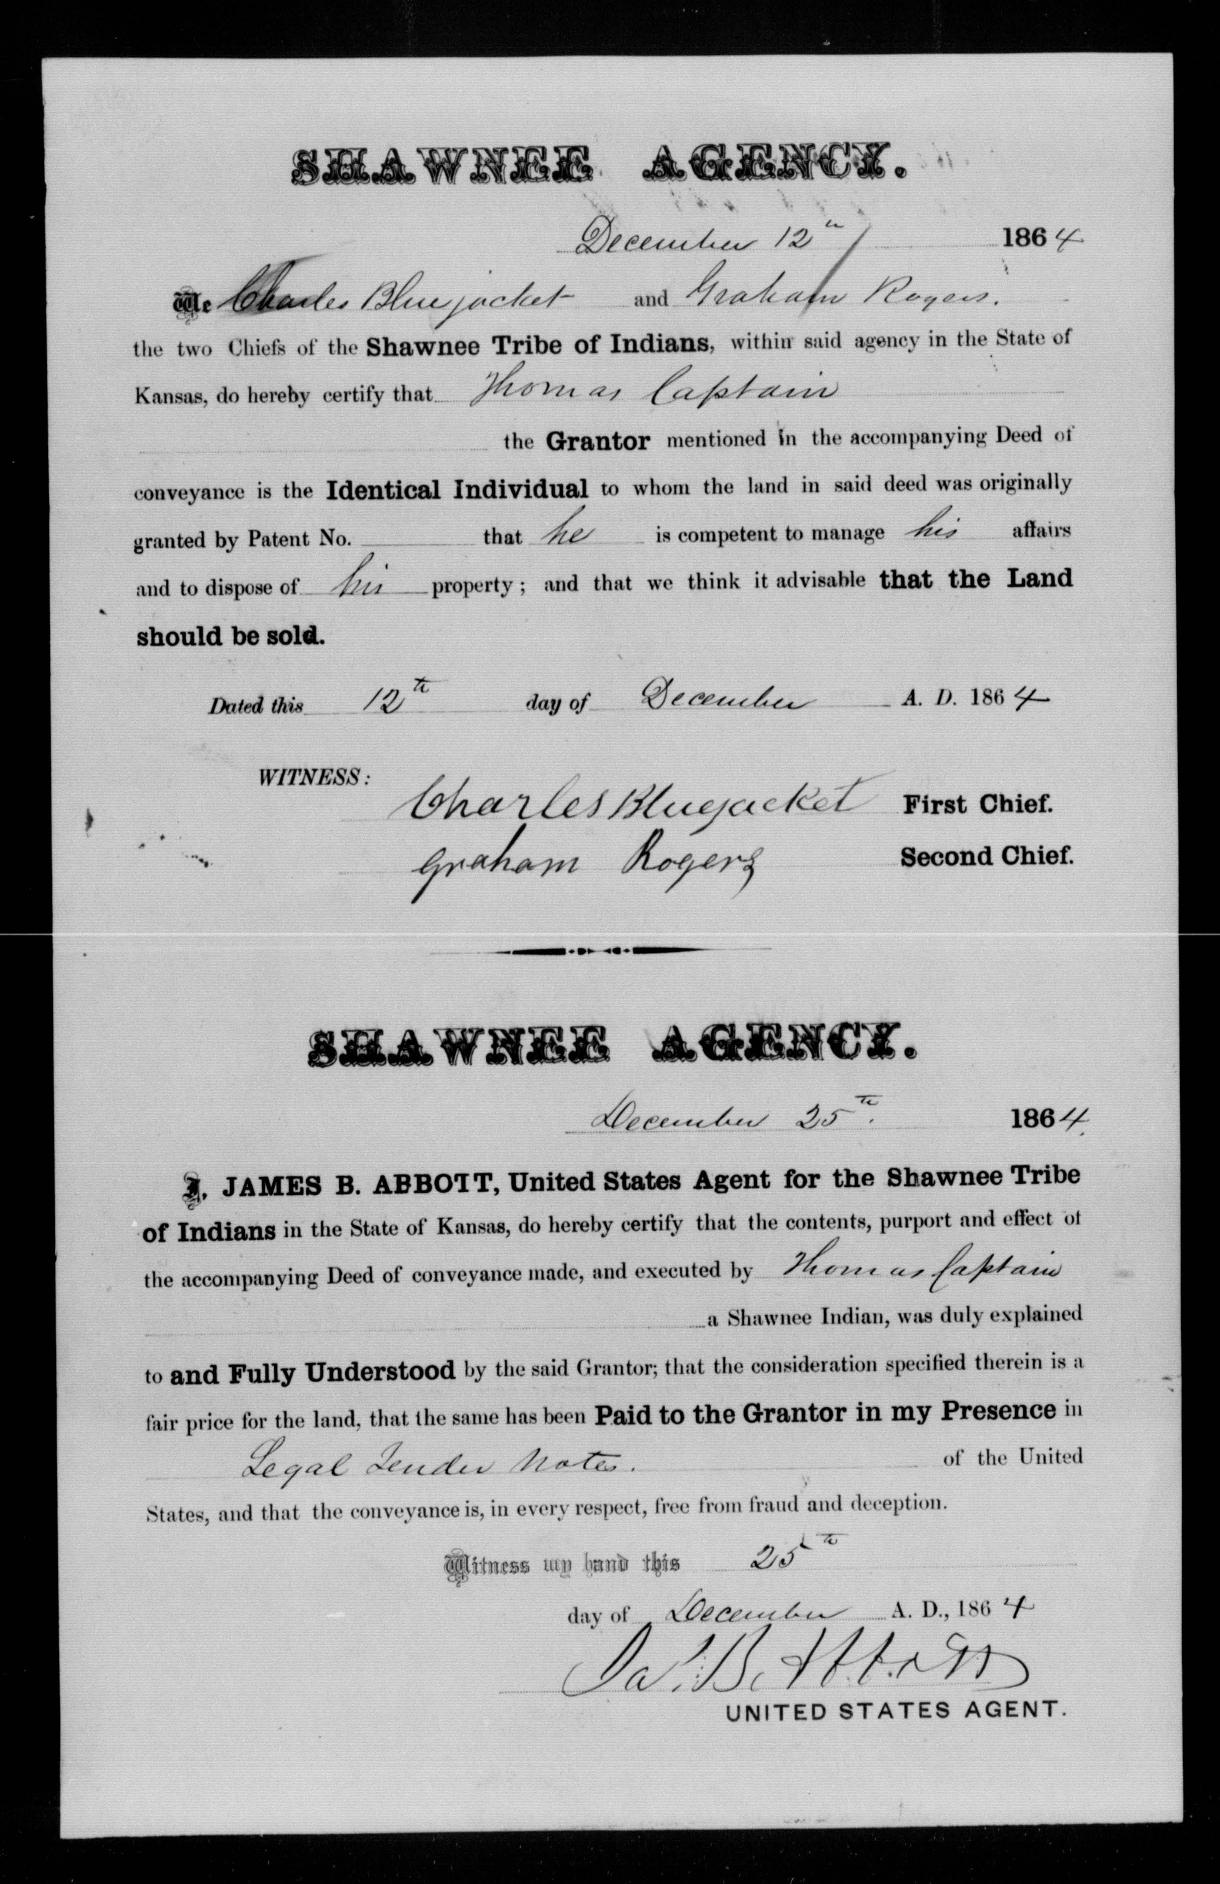 SHAWNEE AGENCY.
December 12th 1864
We Charles Bluejacket and Graham Rogers.
the two Chiefs of the Shawnee Tribe of Indians, within said agency in the State of
Kansas, do hereby certify that Thomas Captain
the Grantor mentioned in the accompanying Deed of
conveyance is the Identical Individual to whom the land in said deed was originally
granted by Patent No. that he is competent to manage his affairs
and to dispose of his property; and that we think it advisable that the Land
should be sold.
Dated this 12th day of December A. D. 1864
WITNESS:
Charles Bluejacket First Chief.
Graham Rogers Second Chief.
SHAWNEE AGENCY.
December 25th. 1864.
I, JAMES B. ABBOTT, United States Agent for the Shawnee Tribe
of Indians in the State of Kansas, do hereby certify that the contents, purport and effect of
the accompanying Deed of conveyance made, and executed by Thomas Captain
a Shawnee Indian, was duly explained
to and Fully Understood by the said Grantor; that the consideration specified therein is a
fair price for the land, that the same has been Paid to the Grantor in my Presence in
Legal Tender Notes. of the United
States, and that the conveyance is, in every respect, free from fraud and deception.
Witness my hand this 25th
day of December A. D., 1864
Jas. B. Abbott
UNITED STATES AGENT.